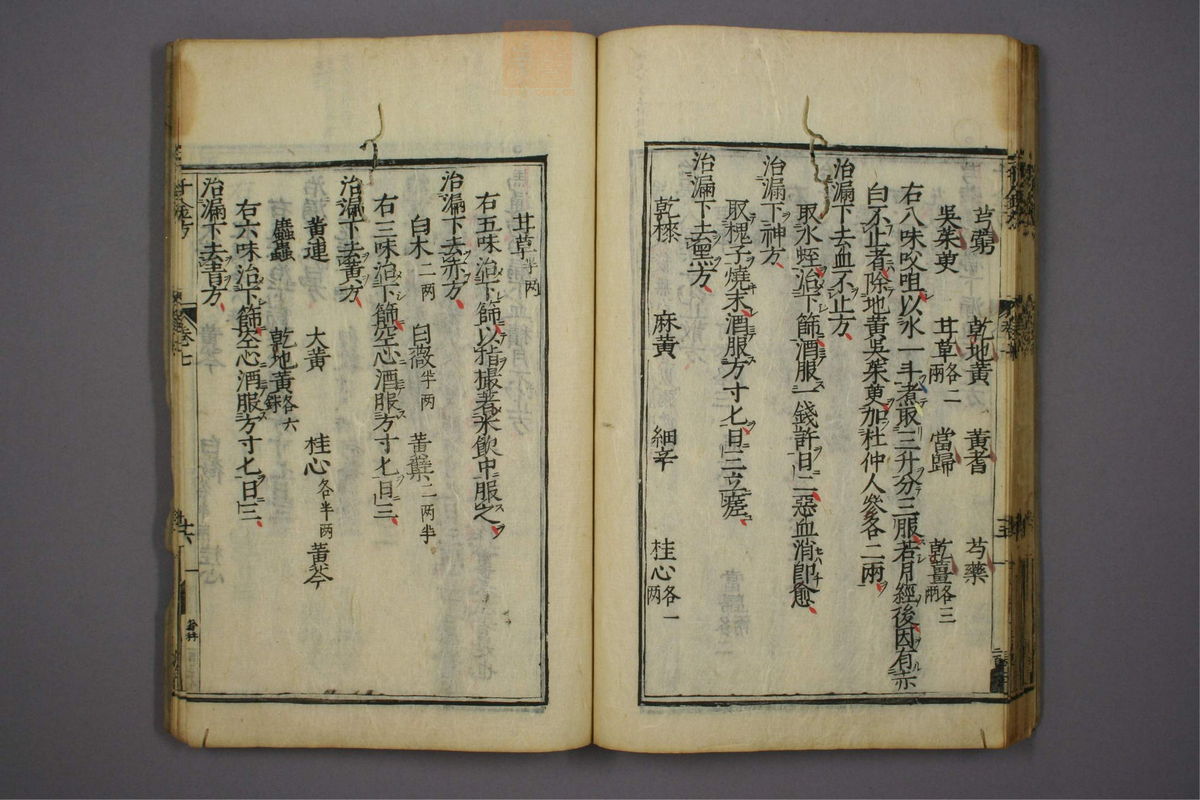 芎藭 乾地黃 黃耆 芍藥
吳茱萸 甘草各二兩 當歸 乾薑各三兩
右八味㕮咀以水一斗煮取三升分三服若月經後因有赤
白不止者除地黃吳茱萸加杜仲人參各二兩
治漏下去血不止方
取水蛭治下篩酒服一錢許日二惡血消即愈
治漏下神方
取槐子燒末酒服方寸匕日三立瘥
治漏下去黑方
乾漆 麻黃 細辛 桂心各一兩
甘草半兩
右五味治下篩以指撮著米飲中服之
治漏下去赤方
白朮二兩 白薇半兩 黃蘗二兩半
右三味治下篩空心酒服方寸匕日三
治漏下去黃方
黃連 大黃 桂心各半兩 黃芩
䗪蟲 乾地黃各六銖
右六味治下篩空心酒服方寸匕日三
治漏下去青方
千金方 卷七 十六